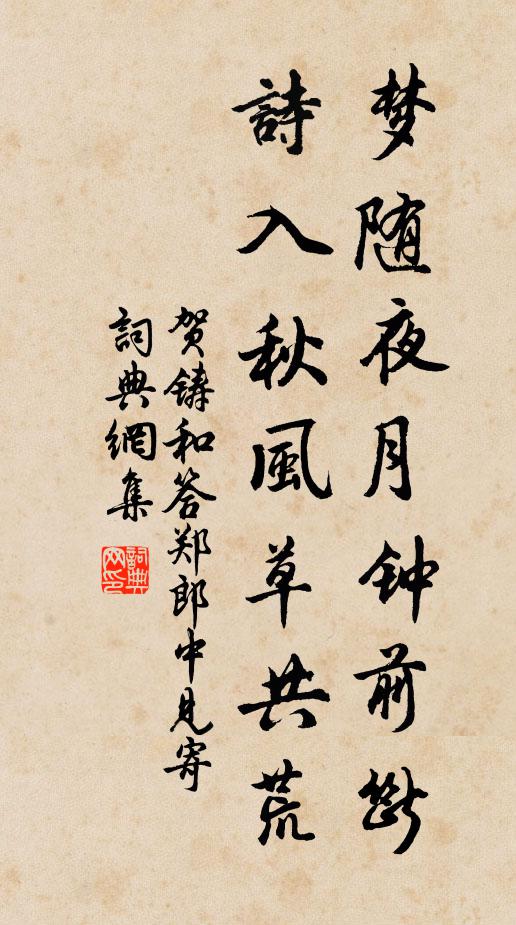 梦随夜月钟前断
詩入秋風草共荒
贺铸和答郑郎中見寄
詞典網集
詞典网印